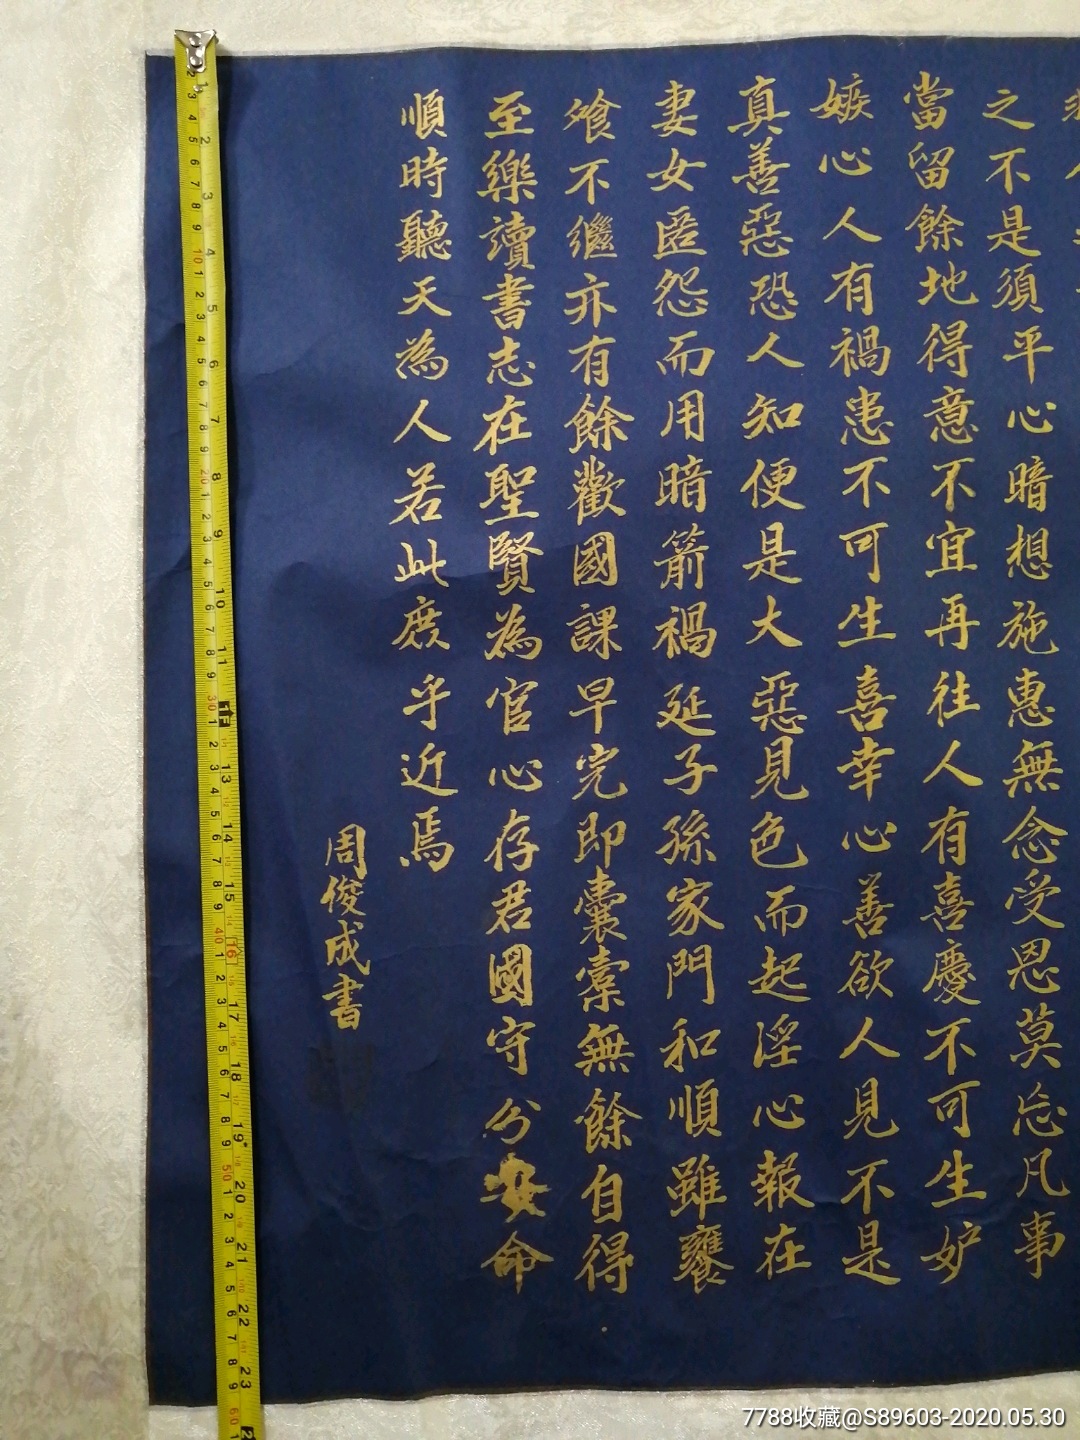 之不是須平心暗想施惠無念受恩莫忘凡事
當留餘地得意不宜再往人有喜慶不可生妒
嫉心人有禍患不可生喜幸心善欲人見不是
真善惡恐人知便是大惡見色而起淫心報在
妻女匿怨而用暗箭禍延子孫家門和順雖饔
飧不繼亦有餘歡國課早完即囊橐無餘自得
至樂讀書志在聖賢為官心存君國守分安命
順時聽天為人若此庶乎近焉
周俊成書
7788收藏@S89603-2020.05.30